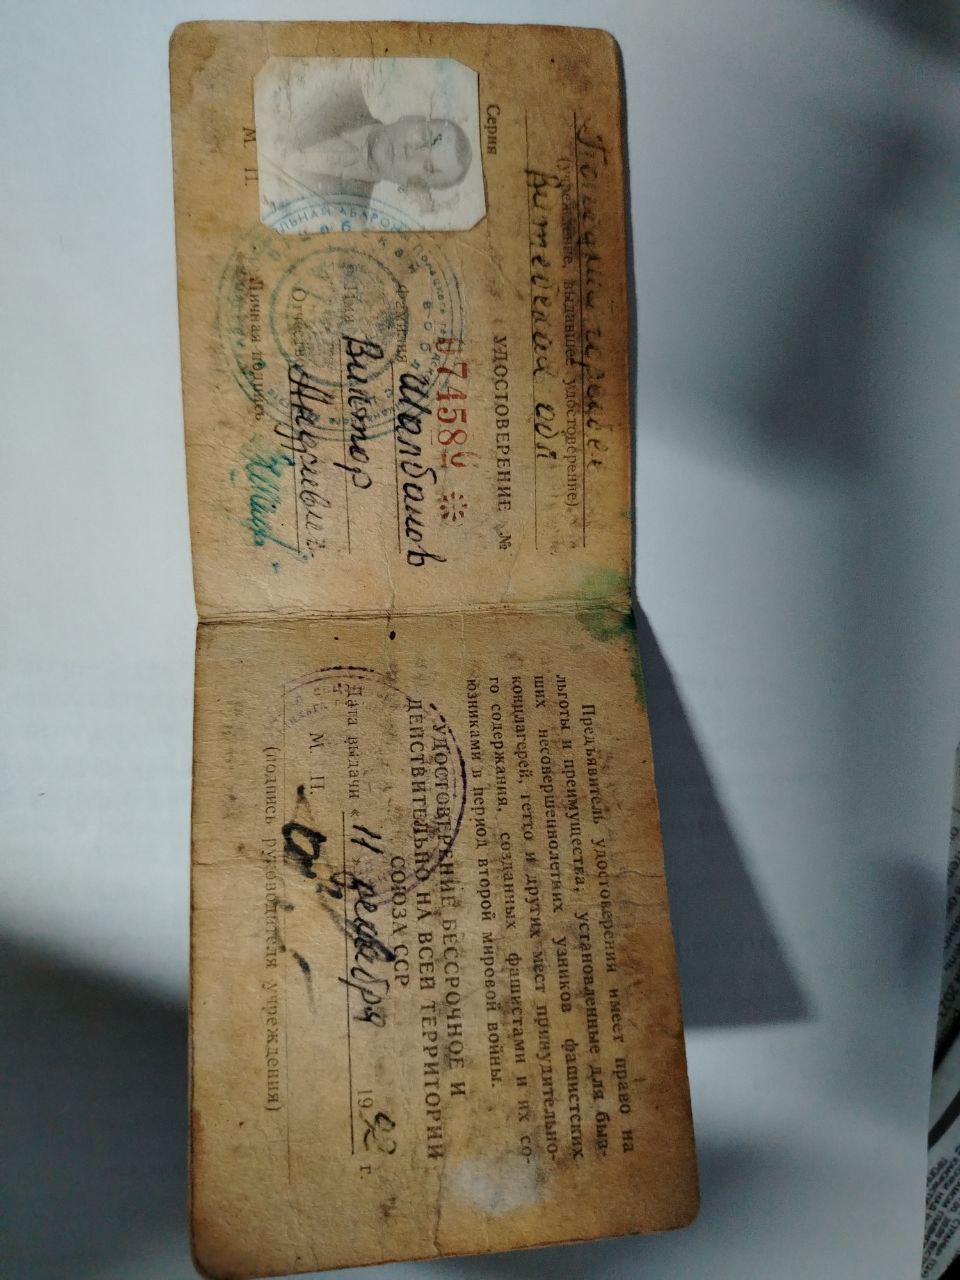 (учреждение, выдавшее удостоверение)
Витебской обл
УДОСТОВЕРЕНИЕ №
Серия
074580
Фамилия Шалбанов
Имя Виктор
Отчество
Личная подпись
М. П.
Предъявитель удостоверения имеет право на
льготы и преимущества, установленные для быв-
ших несовершеннолетних узников фашистских
концлагерей, гетто и других мест принудительно-
го содержания, созданных фашистами и их со-
юзниками в период второй мировой войны.
УДОСТОВЕРЕНИЕ БЕССРОЧНОЕ И
ДЕЙСТВИТЕЛЬНО НА ВСЕЙ ТЕРРИТОРИИ
СОЮЗА ССР
Дата выдачи «11» декабря 1992 г.
М. П.
(подпись руководителя учреждения)